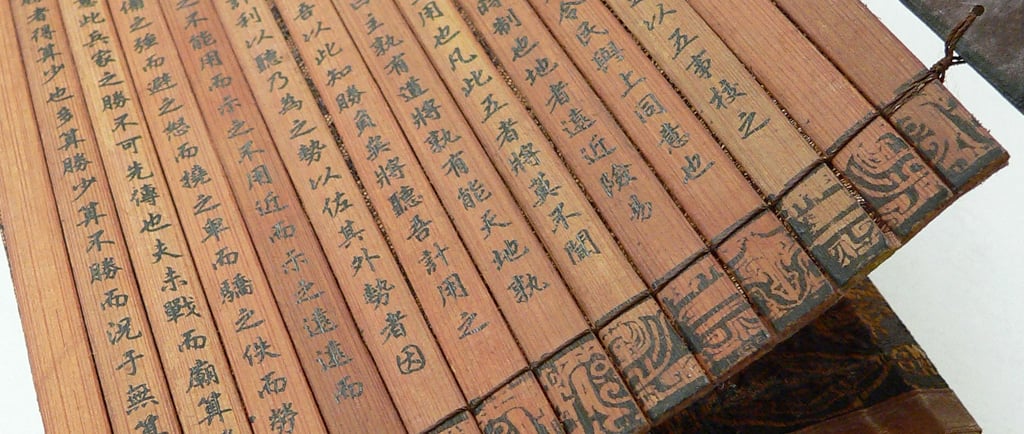 之以五事校之
令民與上同意也
時制也地者遠近險易
用也凡此五者將莫不聞
曰主孰有道將孰有能天地孰
吾以此知勝負矣將聽吾計用之
利以聽乃為之勢以佐其外勢者因
之不能用而示之不用近而示之遠遠而
備之強而避之怒而撓之卑而驕之佚而勞
此兵家之勝不可先傳也夫未戰而廟算
者得算少也多算勝少算不勝而況于無算